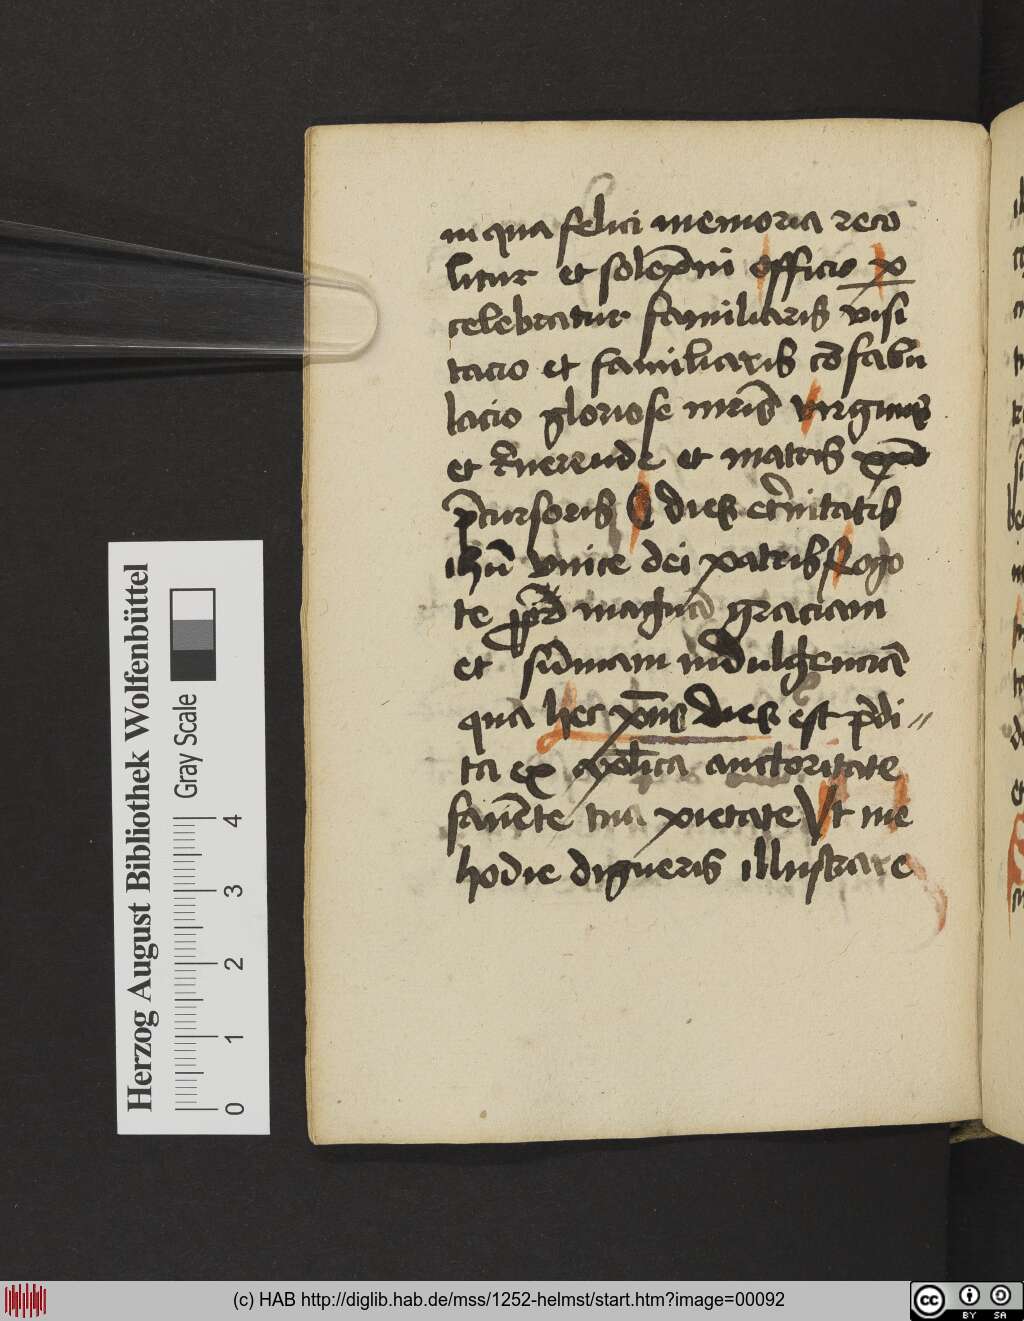 in qua felici memoria reco
litur et solēpni officio
celebratur familiaris visi
tacio et familiaris cōfabu
lacio gloriose mris virginis
et reuerende et matris
p̄cursoris O dies et̄nitatis
ihū vnice dei patris Rogo
te magnā graciam
et sūmam indulgenciā
qua hec dies est p̄di
ta ex aplica auctoritate
tua pietate Vt me
hodie digneris illustrare
Herzog August Bibliothek Wolfenbüttel
Gray Scale
0 1 2 3 4
(c) HAB http://diglib.hab.de/mss/1252-helmst/start.htm?image=00092
cc BY SA